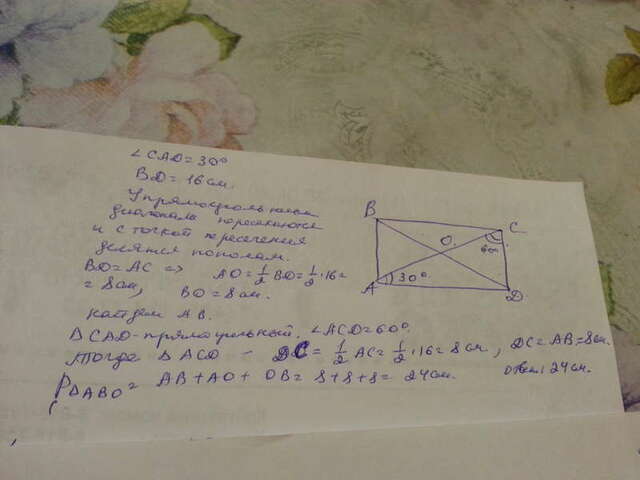 ∠CAD = 30°
BD = 16 см.
У прямоугольника
диагонали пересекаются
и с точкой пересечения
делятся пополам.
BD = AC => AO = 1/2 BD = 1/2 · 16 =
= 8 см, BO = 8 см.
Найдем AB.
ΔCAD - прямоугольный. ∠ACD = 60°.
Тогда ΔACD - DC = 1/2 AC = 1/2 · 16 = 8 см, DC = AB = 8 см.
PΔABO = AB + AO + OB = 8 + 8 + 8 = 24 см. Ответ: 24 см.
B
C
O
60
A
30°
D